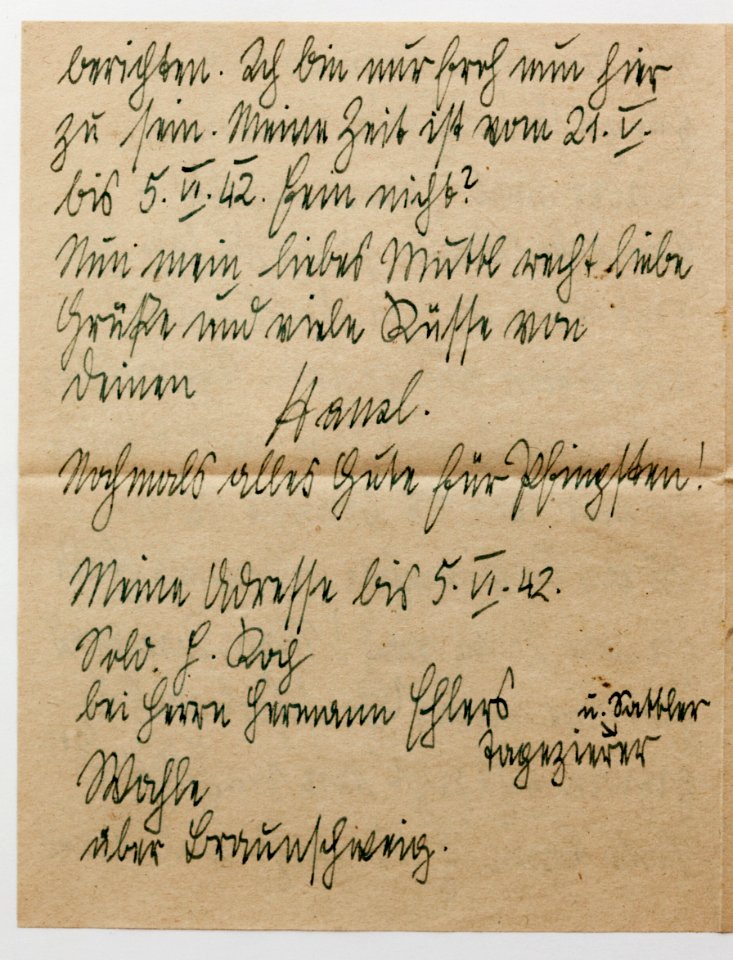 berichten. Ich bin nur froh nun hier
zu sein. Meine Zeit ist vom 21. V.
bis 5. VI. 42. Fein nicht?
Nun mein liebes Muttl recht liebe
Grüße und viele Küsse von
deinen
Hansl.
Nochmals alles Gute für Pfingsten!
Meine Adresse bis 5. VI. 42.
Sold. H. Koch
bei Herrn Hermann Ehlers u. Sattler
Tapezierer
Wahle
über Braunschweig.